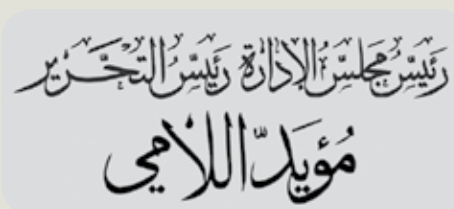 رَئيسُ مَجلسِ الإدَارَة رَئيسُ التَحْــرير
مُؤيَد اللّامي